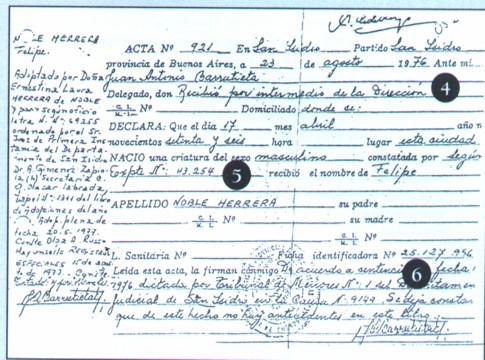 NOBLE HERRERA
Felipe.
Adoptado por Doña
Ernestina Laura
HERRERA de NOBLE
y para segn oficio
letra. N° 69255
ordenado por el Sr.
Juez de Primera Ins-
tancia del Departa-
mento de San Isidro
Dr. A. Gimenez Zapio-
la (h) Secretaria O.
G. Nacar labrada
folio N° 1311 del libro
de Adopciones del año
Adop. plena de
fecha 20.5.1977.
Conste Olga A. Russo
Hay un sello REGISTROS
ESPECIALES 15 de agos-
to de 1977. Conste
J A Barrutieta
ACTA Nº 921 En San Isidro Partido San Isidro
provincia de Buenos Aires, a 23 de agosto 1976 Ante mi
Juan Antonio Barrutieta 4
Delegado, don Recibió por intermedio de la Dirección
C. I. L. E. Nº Domiciliado donde se:
DECLARA: Que el dia 17 mes abril año
novecientos setenta y seis hora lugar esta ciudad
NACIO una criatura del sexo masculino constatada por según
Expte Nº: 43.254 5 recibió el nombre de Felipe
APELLIDO NOBLE HERRERA su padre
C. I. L. E. Nº su madre
C. I. L. E. Nº
L. Sanitaria Nº Ficha identificadora Nº 25.127.996
Leida esta acta, la firman conmigo De acuerdo a sentencia fecha 6
1976 dictada por Tribunal de Menores N: 1 del Departamen
judicial de San Isidro en la Causa N: 9144. Se deja constar
que de este hecho no hay antecedentes en este libro.
J A Barrutieta